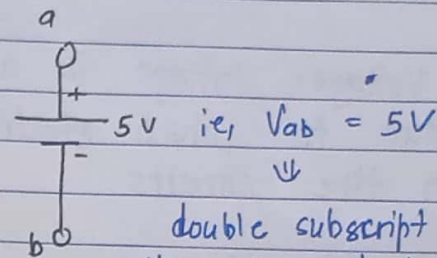 a
+
5V ie, Vab = 5V
-
⇓
b double subscript